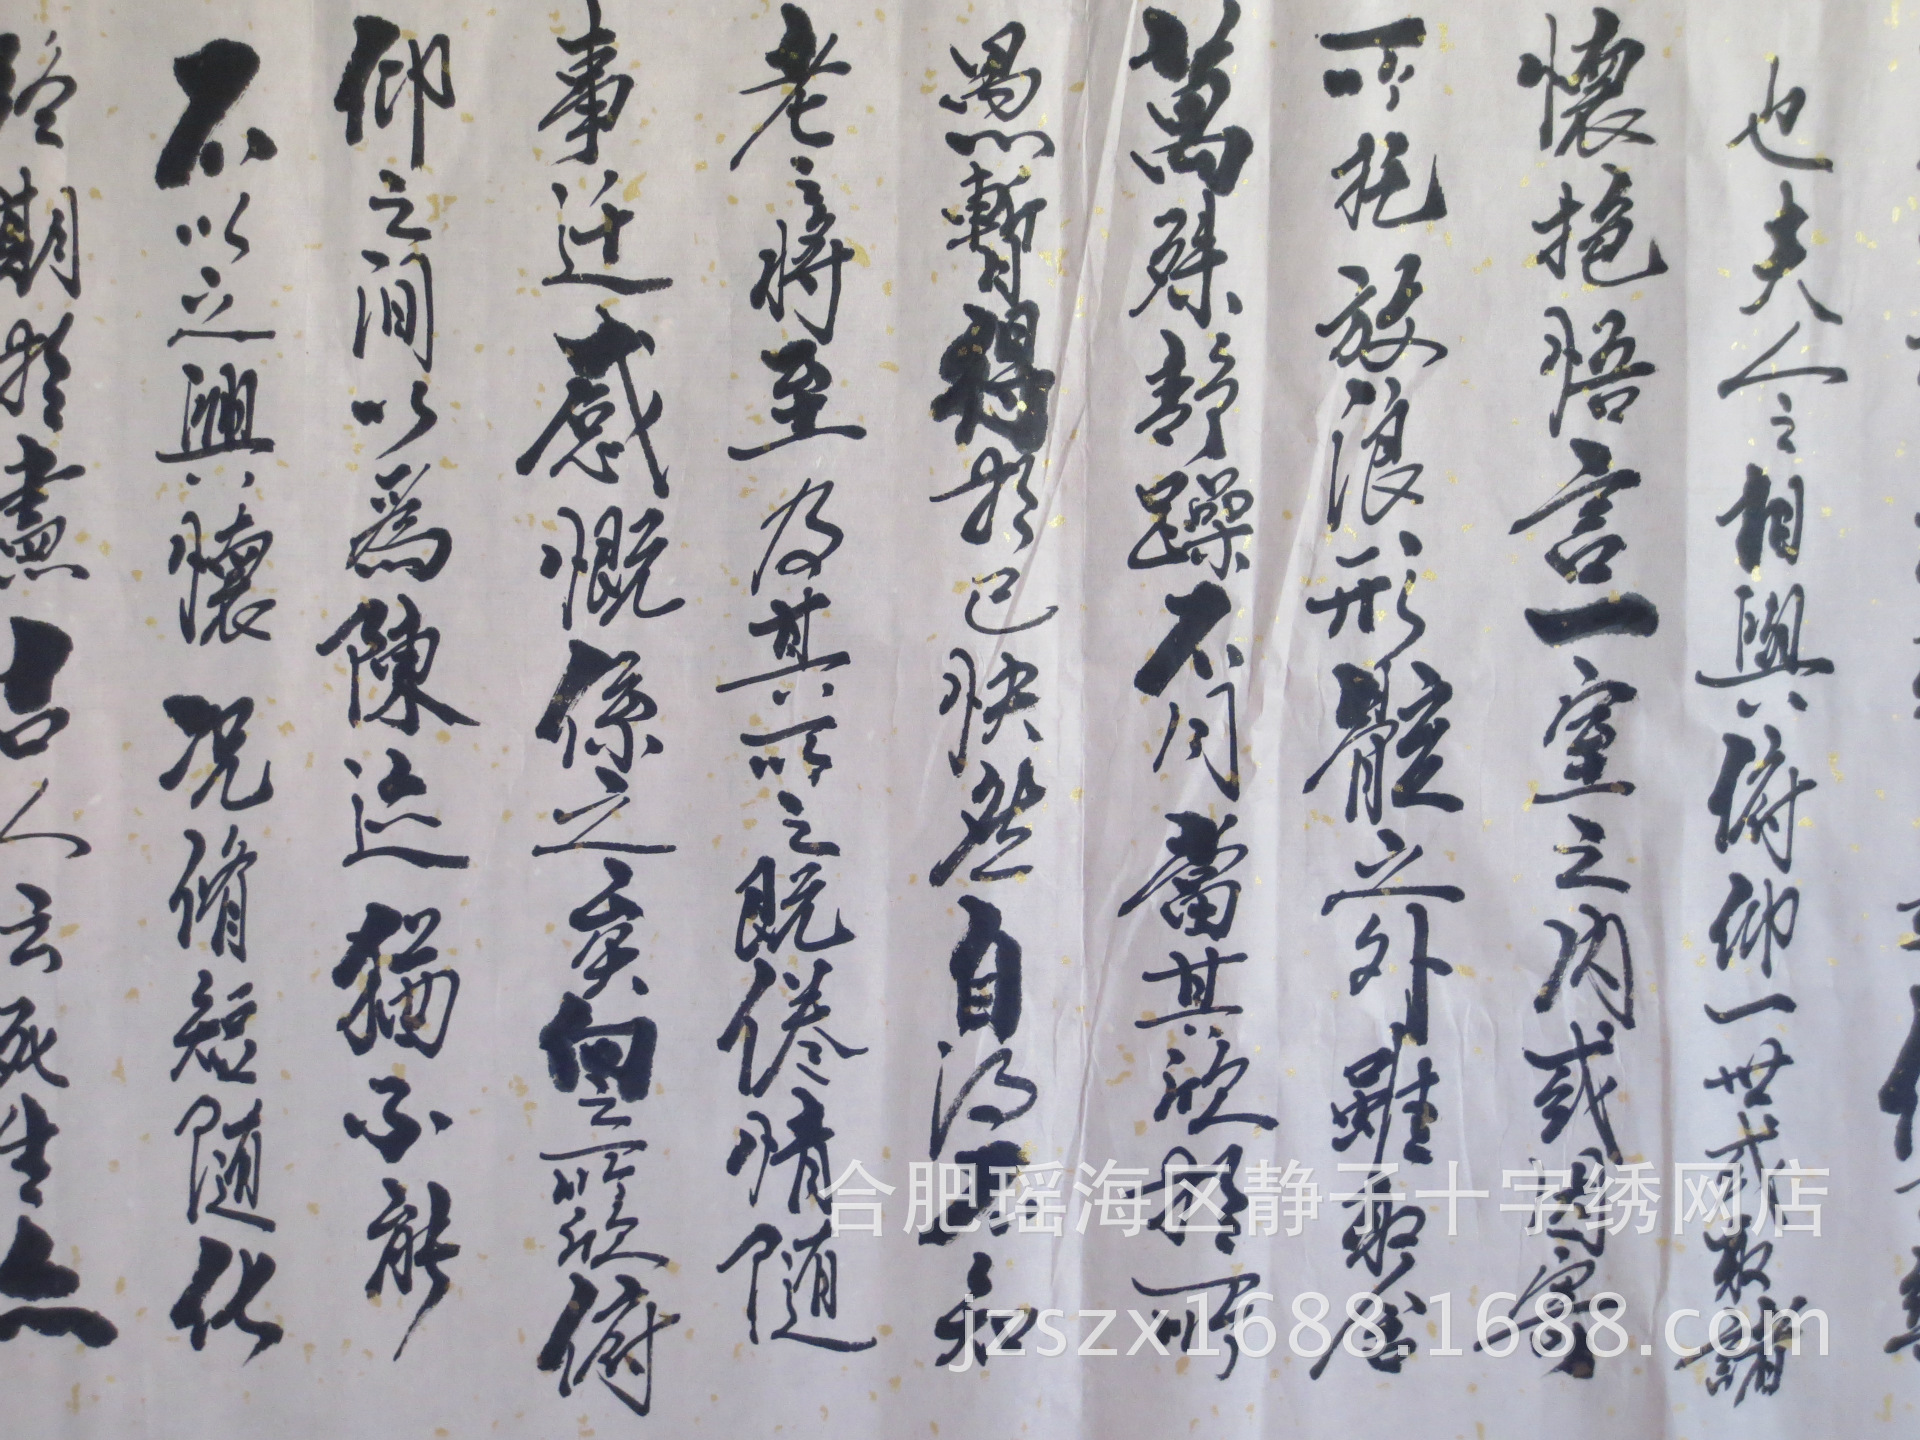 也夫人之相與俯仰一世或取諸
懷抱悟言一室之內或因寄
所托放浪形骸之外雖取舍
萬殊静躁不同當其欣於所
遇暫得於己快然自得不知
老之將至及其所之既倦情隨
事迁感慨係之矣向之所欣俯
仰之間以為陳迹猶不能
不以之興懷况脩短隨化
終期於盡古人云死生亦
合肥瑶海区静子十字绣网店
jzszx1688.1688.com